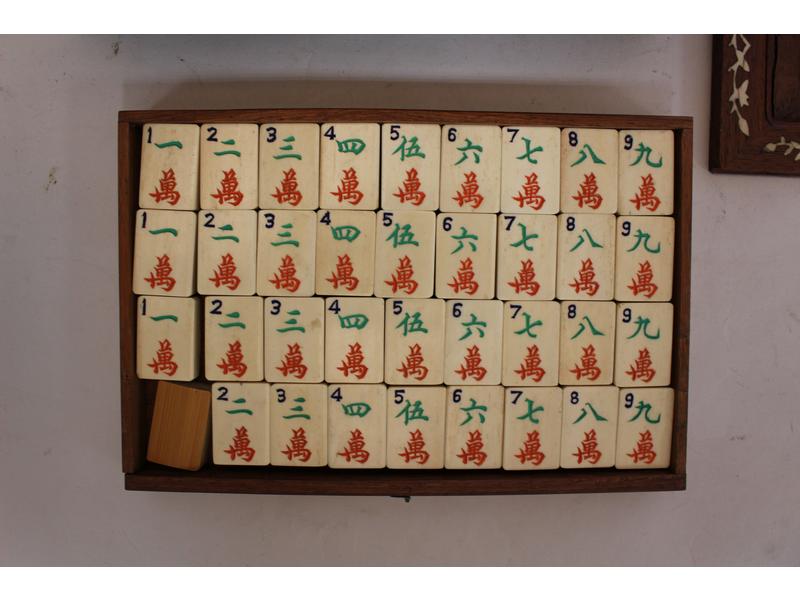 1 一 萬 2 二 萬 3 三 萬 4 四 萬 5 伍 萬 6 六 萬 7 七 萬 8 八 萬 9 九 萬
1 一 萬 2 二 萬 3 三 萬 4 四 萬 5 伍 萬 6 六 萬 7 七 萬 8 八 萬 9 九 萬
1 一 萬 2 二 萬 3 三 萬 4 四 萬 5 伍 萬 6 六 萬 7 七 萬 8 八 萬 9 九 萬
2 二 萬 3 三 萬 4 四 萬 5 伍 萬 6 六 萬 7 七 萬 8 八 萬 9 九 萬